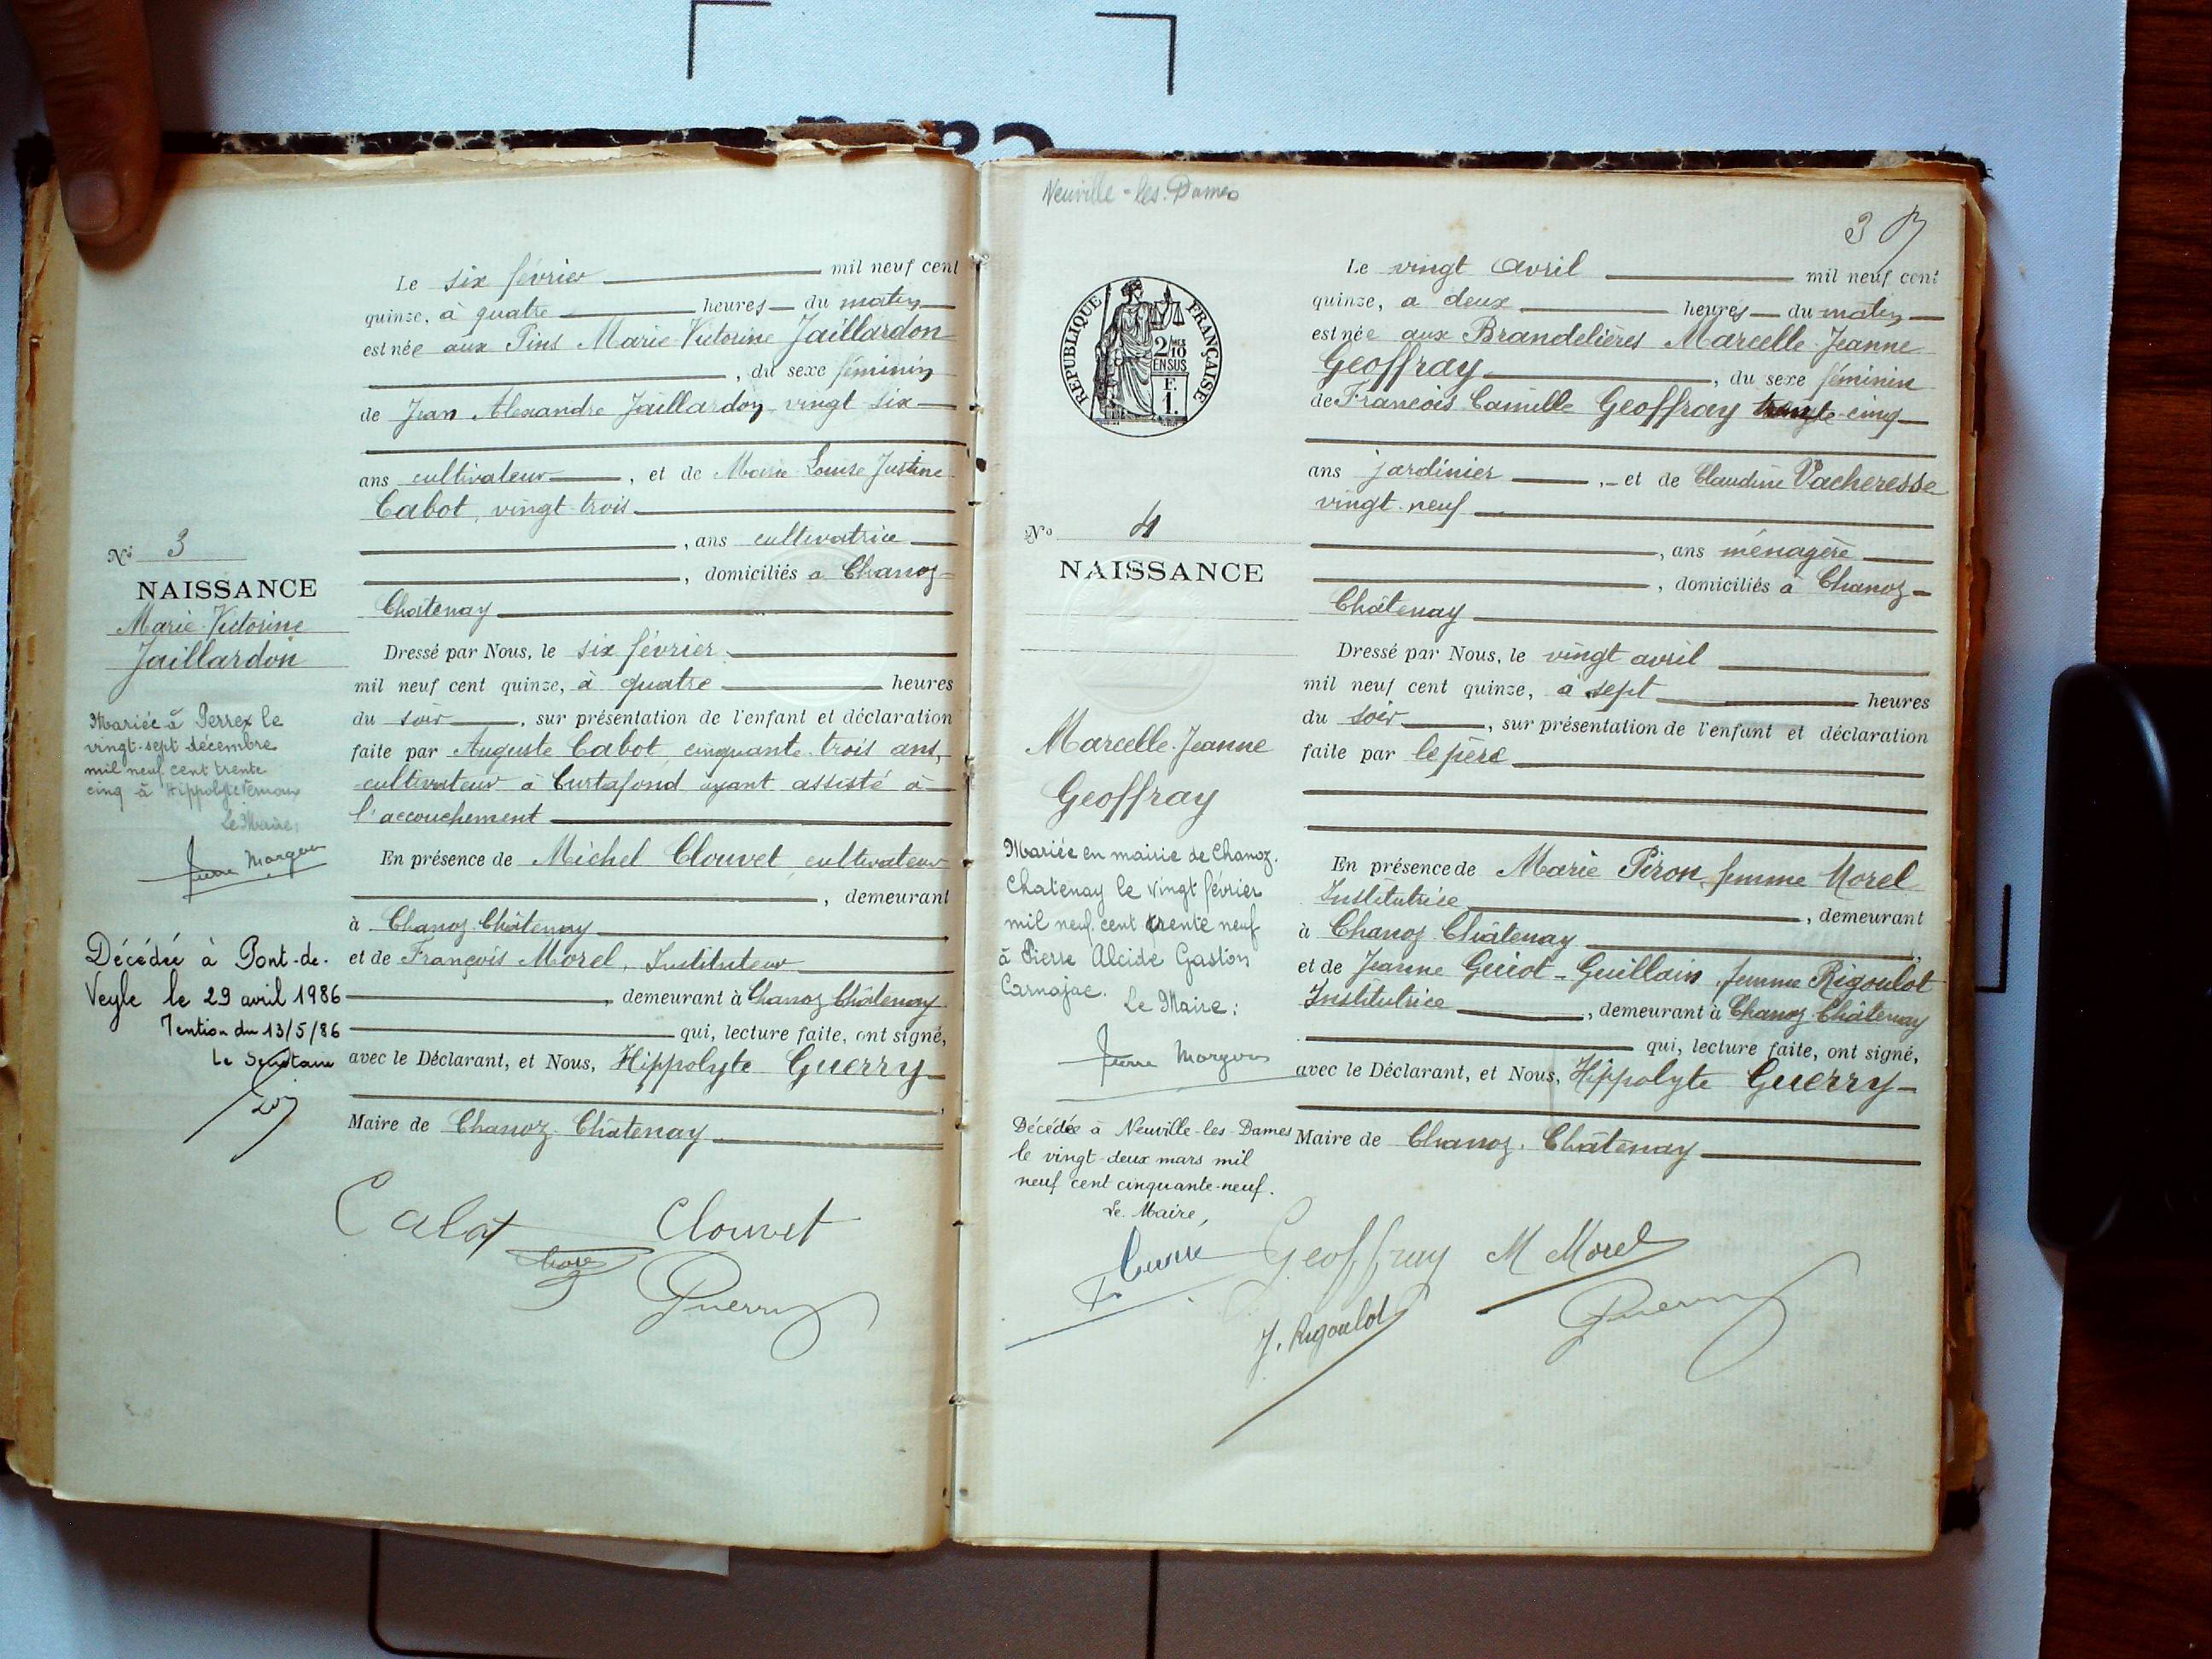 Le six février mil neuf cent
quinze, à quatre heures du matin
est née aux Pins Marie Victorine Jaillardon
, du sexe féminin
de Jean Alexandre Jaillardon vingt six
ans cultivateur, et de Marie Louise Justine
Cabot, vingt-trois
, ans cultivatrice
, domiciliés à Chanoz-
Châtenay
Dressé par Nous, le six février
mil neuf cent quinze, à quatre heures
du soir, sur présentation de l'enfant et déclaration
faite par Auguste Cabot, cinquante-trois ans,
cultivateur à Curtafond ayant assisté à
l'accouchement
En présence de Michel Clouvet, cultivateur
, demeurant
à Chanoz-Châtenay
et de François Morel, Instituteur
, demeurant à Chanoz Châtenay
qui, lecture faite, ont signé,
avec le Déclarant, et Nous, Hippolyte Guerry
Maire de Chanoz-Châtenay
Cabot Clouvet
Guerry
No 3
NAISSANCE
Marie-Victorine
Jaillardon
Mariée à Perrex le
vingt-sept décembre
mil neuf cent trente
cinq à Hippolyte
Le Maire:
Pierre Morgon
Décédée à Pont-de-
Veyle le 29 avril 1986
Mention du 13/5/86
Le Secrétaire
Neuville-les-Dames
3
RÉPUBLIQUE FRANÇAISE
2/10
EN SUS
F.
1.
Le vingt Avril mil neuf cent
quinze, à deux heures du matin
est née aux Brandelières Marcelle Jeanne
Geoffray, du sexe féminin
de François Camille Geoffray trente-cinq
ans jardinier, et de Claudine Vacheresse
vingt-neuf
, ans ménagère
, domiciliés à Chanoz-
Châtenay
Dressé par Nous, le vingt avril
mil neuf cent quinze, à sept heures
du soir, sur présentation de l'enfant et déclaration
faite par le père
En présence de Marie Piron, femme Morel
Institutrice, demeurant
à Chanoz-Châtenay
et de Jeanne Guiot-Guillain, femme Rigoulot
Institutrice, demeurant à Chanoz Châtenay
qui, lecture faite, ont signé,
avec le Déclarant, et Nous, Hippolyte Guerry
Maire de Chanoz-Châtenay
Geoffray M Morel
J. Rigoulot Guerry
No 4
NAISSANCE
Marcelle-Jeanne
Geoffray
Mariée en mairie de Chanoz-
Chatenay le vingt février
mil neuf cent trente neuf
à Pierre Alcide Gaston
Carnajac.
Le Maire:
Pierre Morgon
Décédée à Neuville-les-Dames
le vingt-deux mars mil
neuf cent cinquante-neuf.
Le Maire,